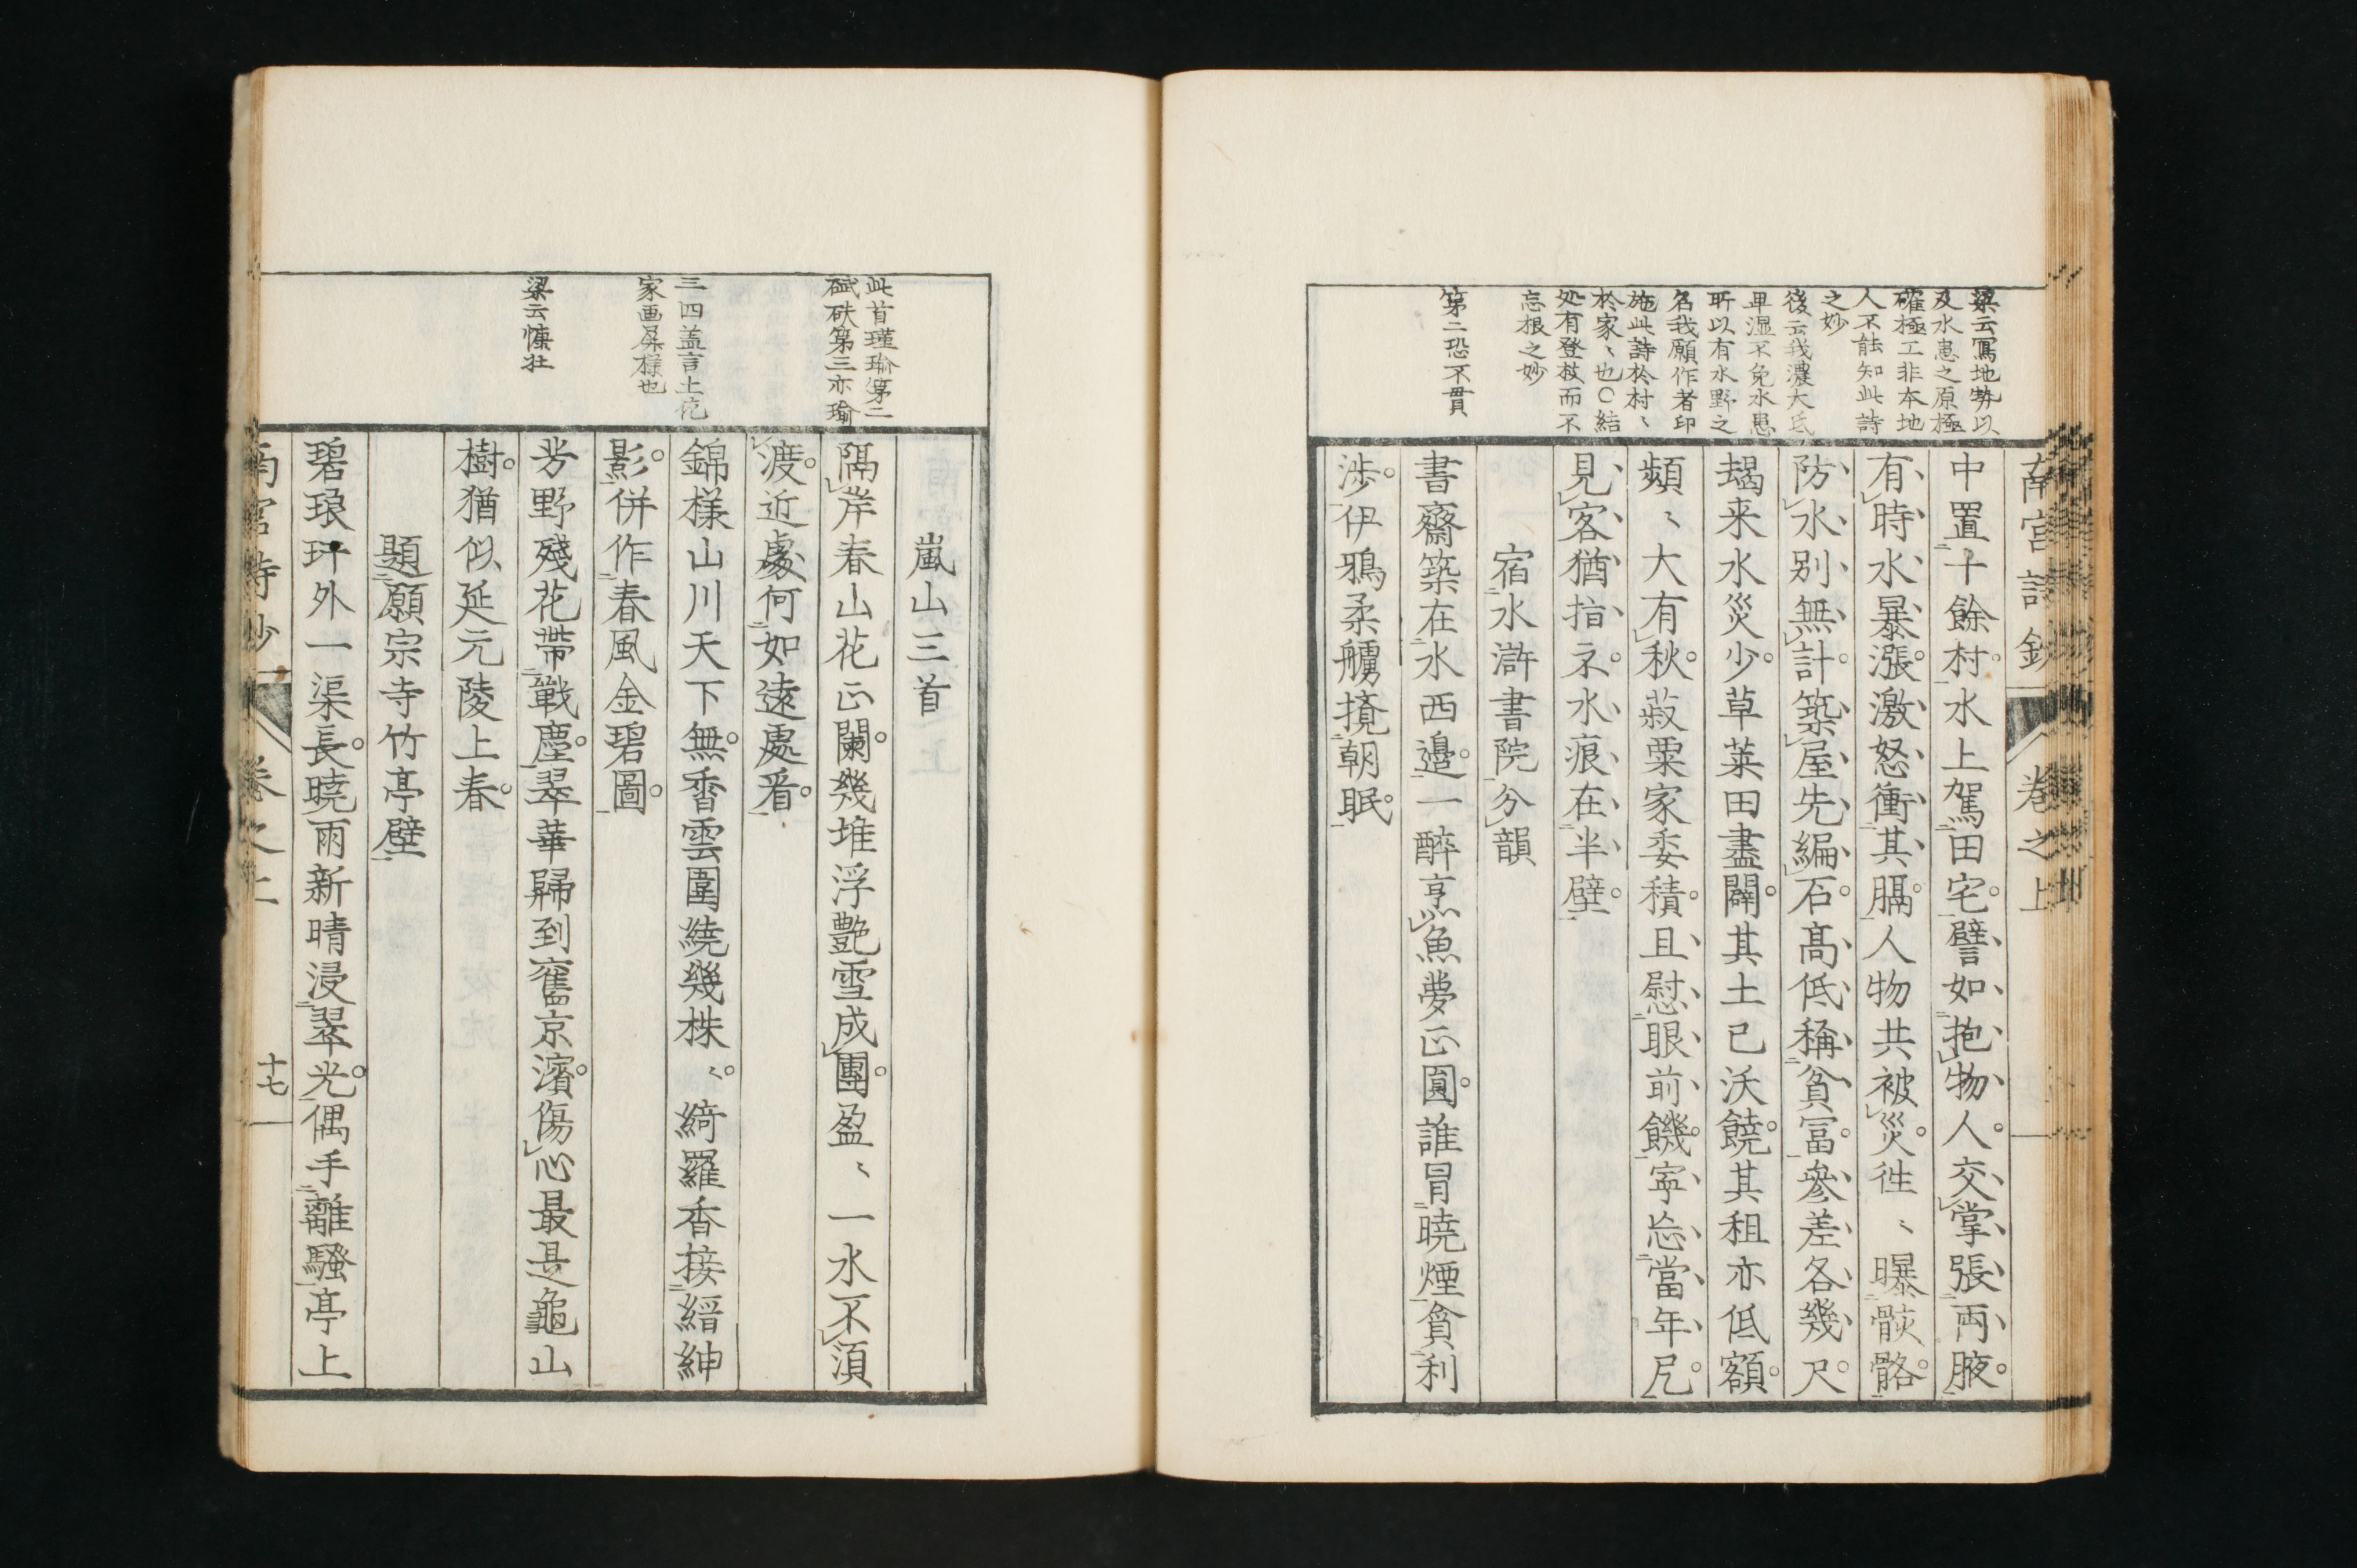 梁云寫地勢以
及水患之原極
確極工非本地
人不能知此詩
之妙
後云我濃大氐
卑湿不免水患
所以有水野之
名我願作者印
施此詩於村〻
於家〻也〇結
処有登杖而不
忘根之妙
第二恐不貫
南宮詩鈔 卷之上
中置十餘村水上駕田宅譬如抱物人交掌張両腋
有時水暴漲激怒衝其膈人物共被災徃〻曝骸骼
防水別無計築屋先編石高低稱貧冨參差各幾尺
朅来水災少草萊田盡闢其土已沃饒其租亦低額
頻〻大有秋菽粟家委積且慰眼前饑寧忘當年厄
見客猶指示水痕在半壁
宿水滸書院分韻
書齋築在水西邉一醉烹魚夢正圓誰冒曉煙貪利
渉伊鴉柔艣攪朝眠
此首瑾瑜第二
碔砆第三亦瑜
三四盖言土佐
家画屏様也
梁云慷壯
嵐山三首
隔岸春山花正闌幾堆浮艶雪成團盈〻一水不須
渡近處何如遠處看
錦様山川天下無香雲圍繞幾株〻綺羅香接縉紳
影併作春風金碧圖
芳野殘花帶戰塵翠華歸到舊京濱傷心最是龜山
樹猶似延元陵上春
題願宗寺竹亭壁
碧琅玕外一渠長曉雨新晴浸翠光偶手離騷亭上
南宮詩鈔 卷之上 十七